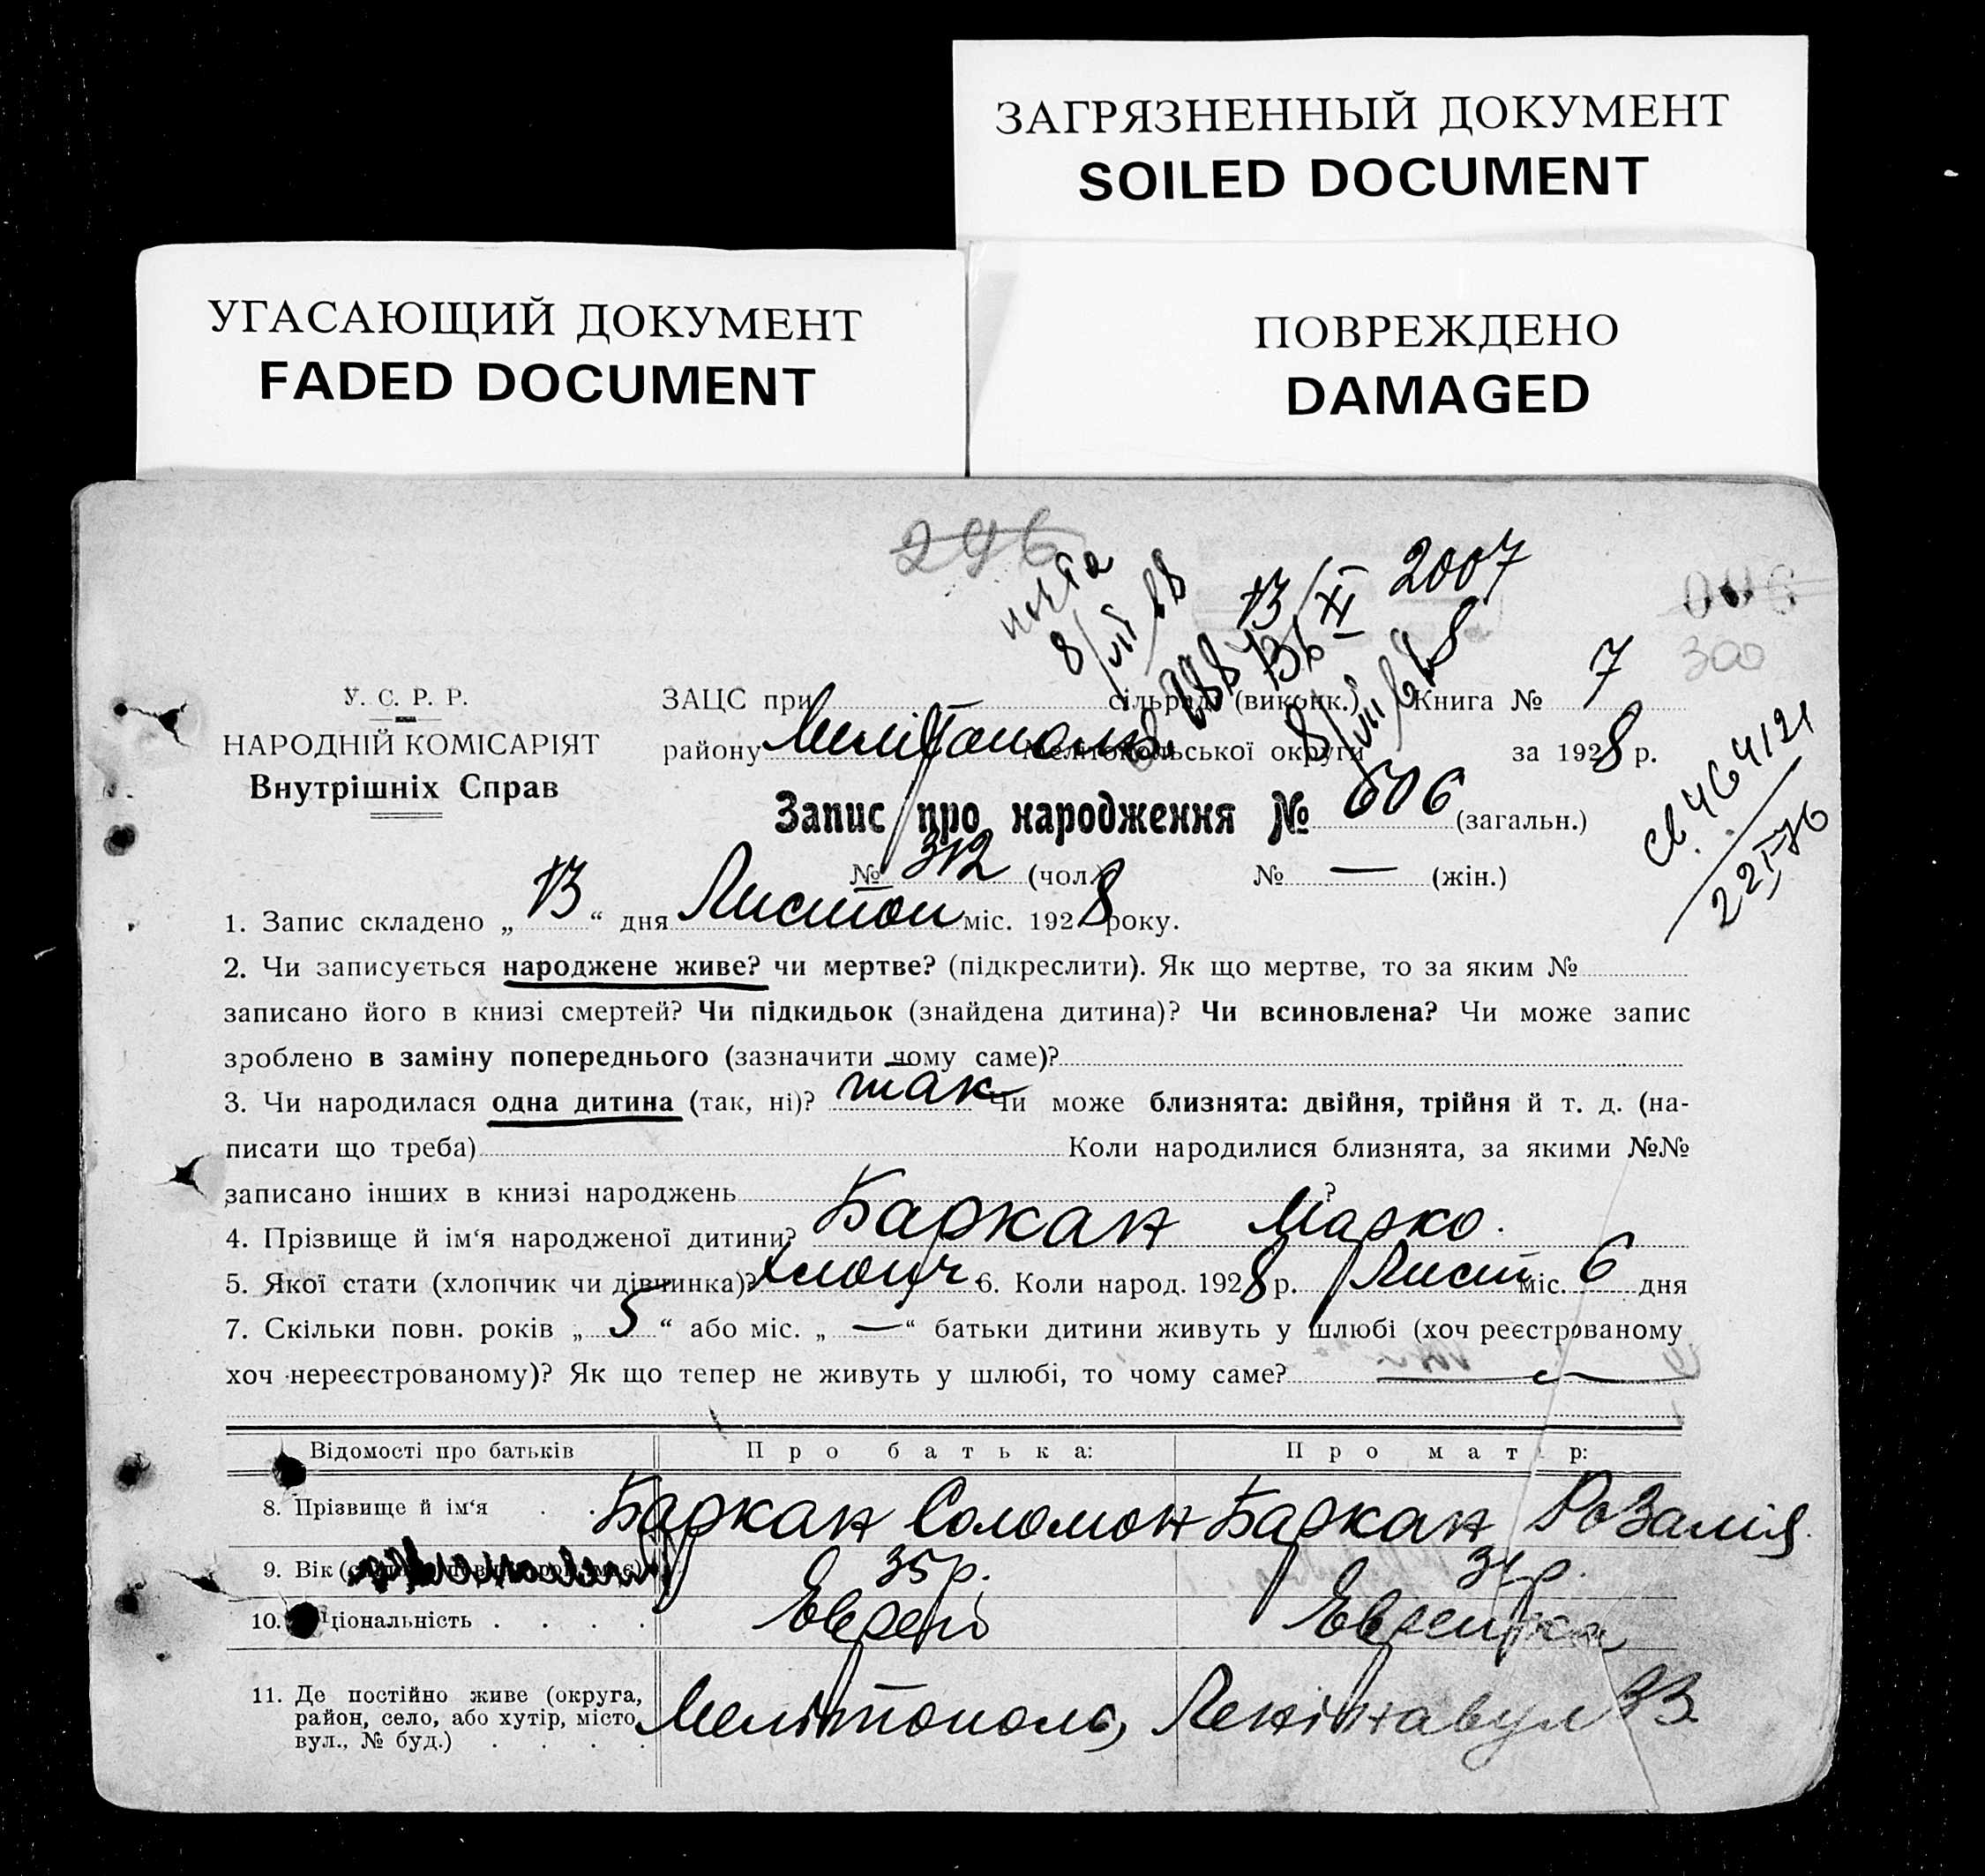 ЗАГРЯЗНЕННЫЙ ДОКУМЕНТ
SOILED DOCUMENT
УГАСАЮЩИЙ ДОКУМЕНТ
FADED DOCUMENT
ПОВРЕЖДЕНО
DAMAGED
296
2007
13/XI
8/VII 68
300
У. С. Р. Р.
НАРОДНІЙ КОМІСАРІЯТ
Внутрішніх Справ
ЗАЦС при сільраді (виконк.) Книга № 7
району Мелітополь Мелітопольської округи за 1928 р.
Запис про народження № 606 (загальн.)
№ 312 (чол.) № — (жін.)
св. 464121
22/I-76
1. Запис складено „13“ дня Листоп міс. 1928 року.
2. Чи записується народжене живе? чи мертве? (підкреслити). Як що мертве, то за яким №
записано його в книзі смертей? Чи підкидьок (знайдена дитина)? Чи всиновлена? Чи може запис
зроблено в заміну попереднього (зазначити чому саме)?
3. Чи народилася одна дитина (так, ні)? так Чи може близнята: двійня, трійня й т. д. (на-
писати що треба) Коли народилися близнята, за якими №№
записано інших в книзі народжень ?
4. Прізвище й ім‘я народженої дитини? Баркан Марко.
5. Якої стати (хлопчик чи дівчинка)? Хлопч. 6. Коли народ. 1928 р. Лист міс. 6 дня
7. Скільки повн. років „5“ або міс. „—“ батьки дитини живуть у шлюбі (хоч реєстрованому
хоч нереєстрованому)? Як що тепер не живуть у шлюбі, то чому саме? —
Відомості про батьків Про батька: Про матір:
8. Прізвище й ім‘я . . Баркан Соломон Баркан Розалія
9. Вік 35 р. р.
10. ціональність . . . . Еврей Еврейка
11. Де постійно живе (округа,
район, село, або хутір, місто,
вул., № буд.) . . . . Мелітополь, Леніна вул 33